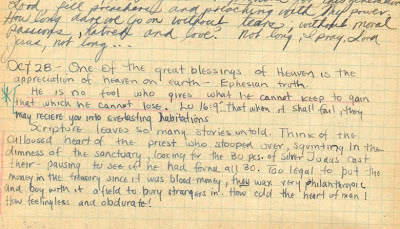 Lord, fill preachers and preaching with Thy power.
How long dare we go on without tears, without moral
passions, hatred and love? Not long, I pray, Lord
Jesus, not long...
Oct 28 - One of the great blessings of Heaven is the
appreciation of heaven on earth - Ephesian truth.
He is no fool who gives what he cannot keep to gain
that which he cannot lose. Lu 16:9 "that when it shall fail, they
may receive you into everlasting habitations
Scripture leaves so many stories untold. Think of the
calloused heart of the priest who stooped over, squinting in the
dimness of the sanctuary, looking for the 30 pcs. of silver Judas cast
there - pausing to see if he had found all 30. Too legal to put the
money in the treasury since it was blood-money, they wax very philanthropic
and buy with it a field to bury strangers in. How cold the heart of man!
How feelingless and obdurate!